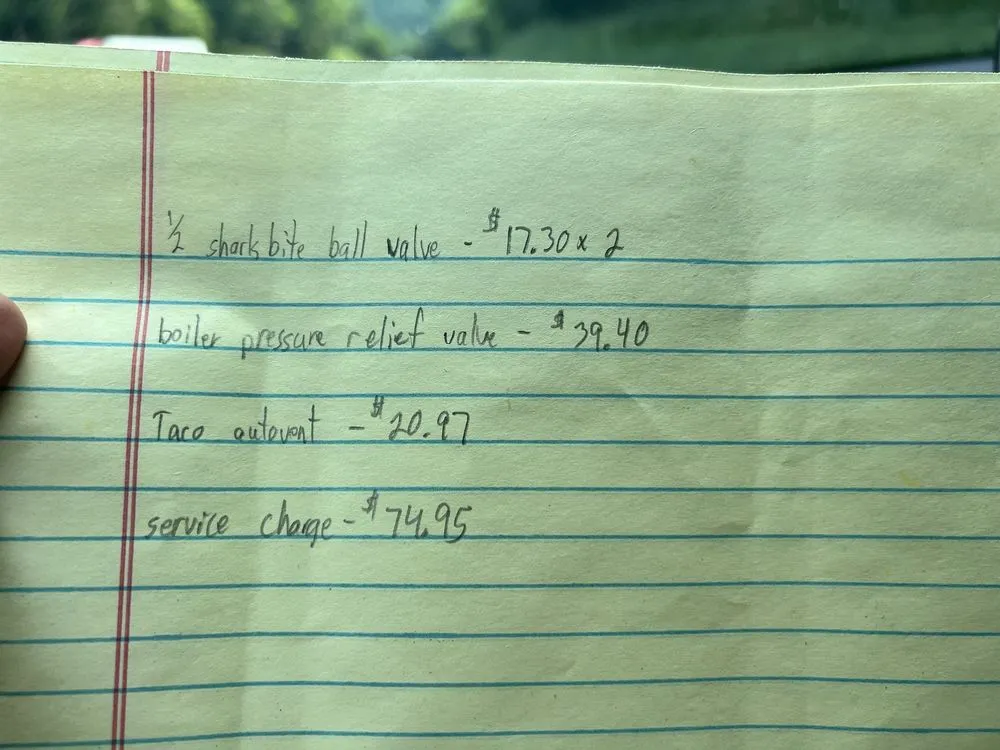 1/2 sharkbite ball valve - $17.30 x 2
boiler pressure relief valve - $39.40
Taco autovent - $20.97
service charge - $74.95